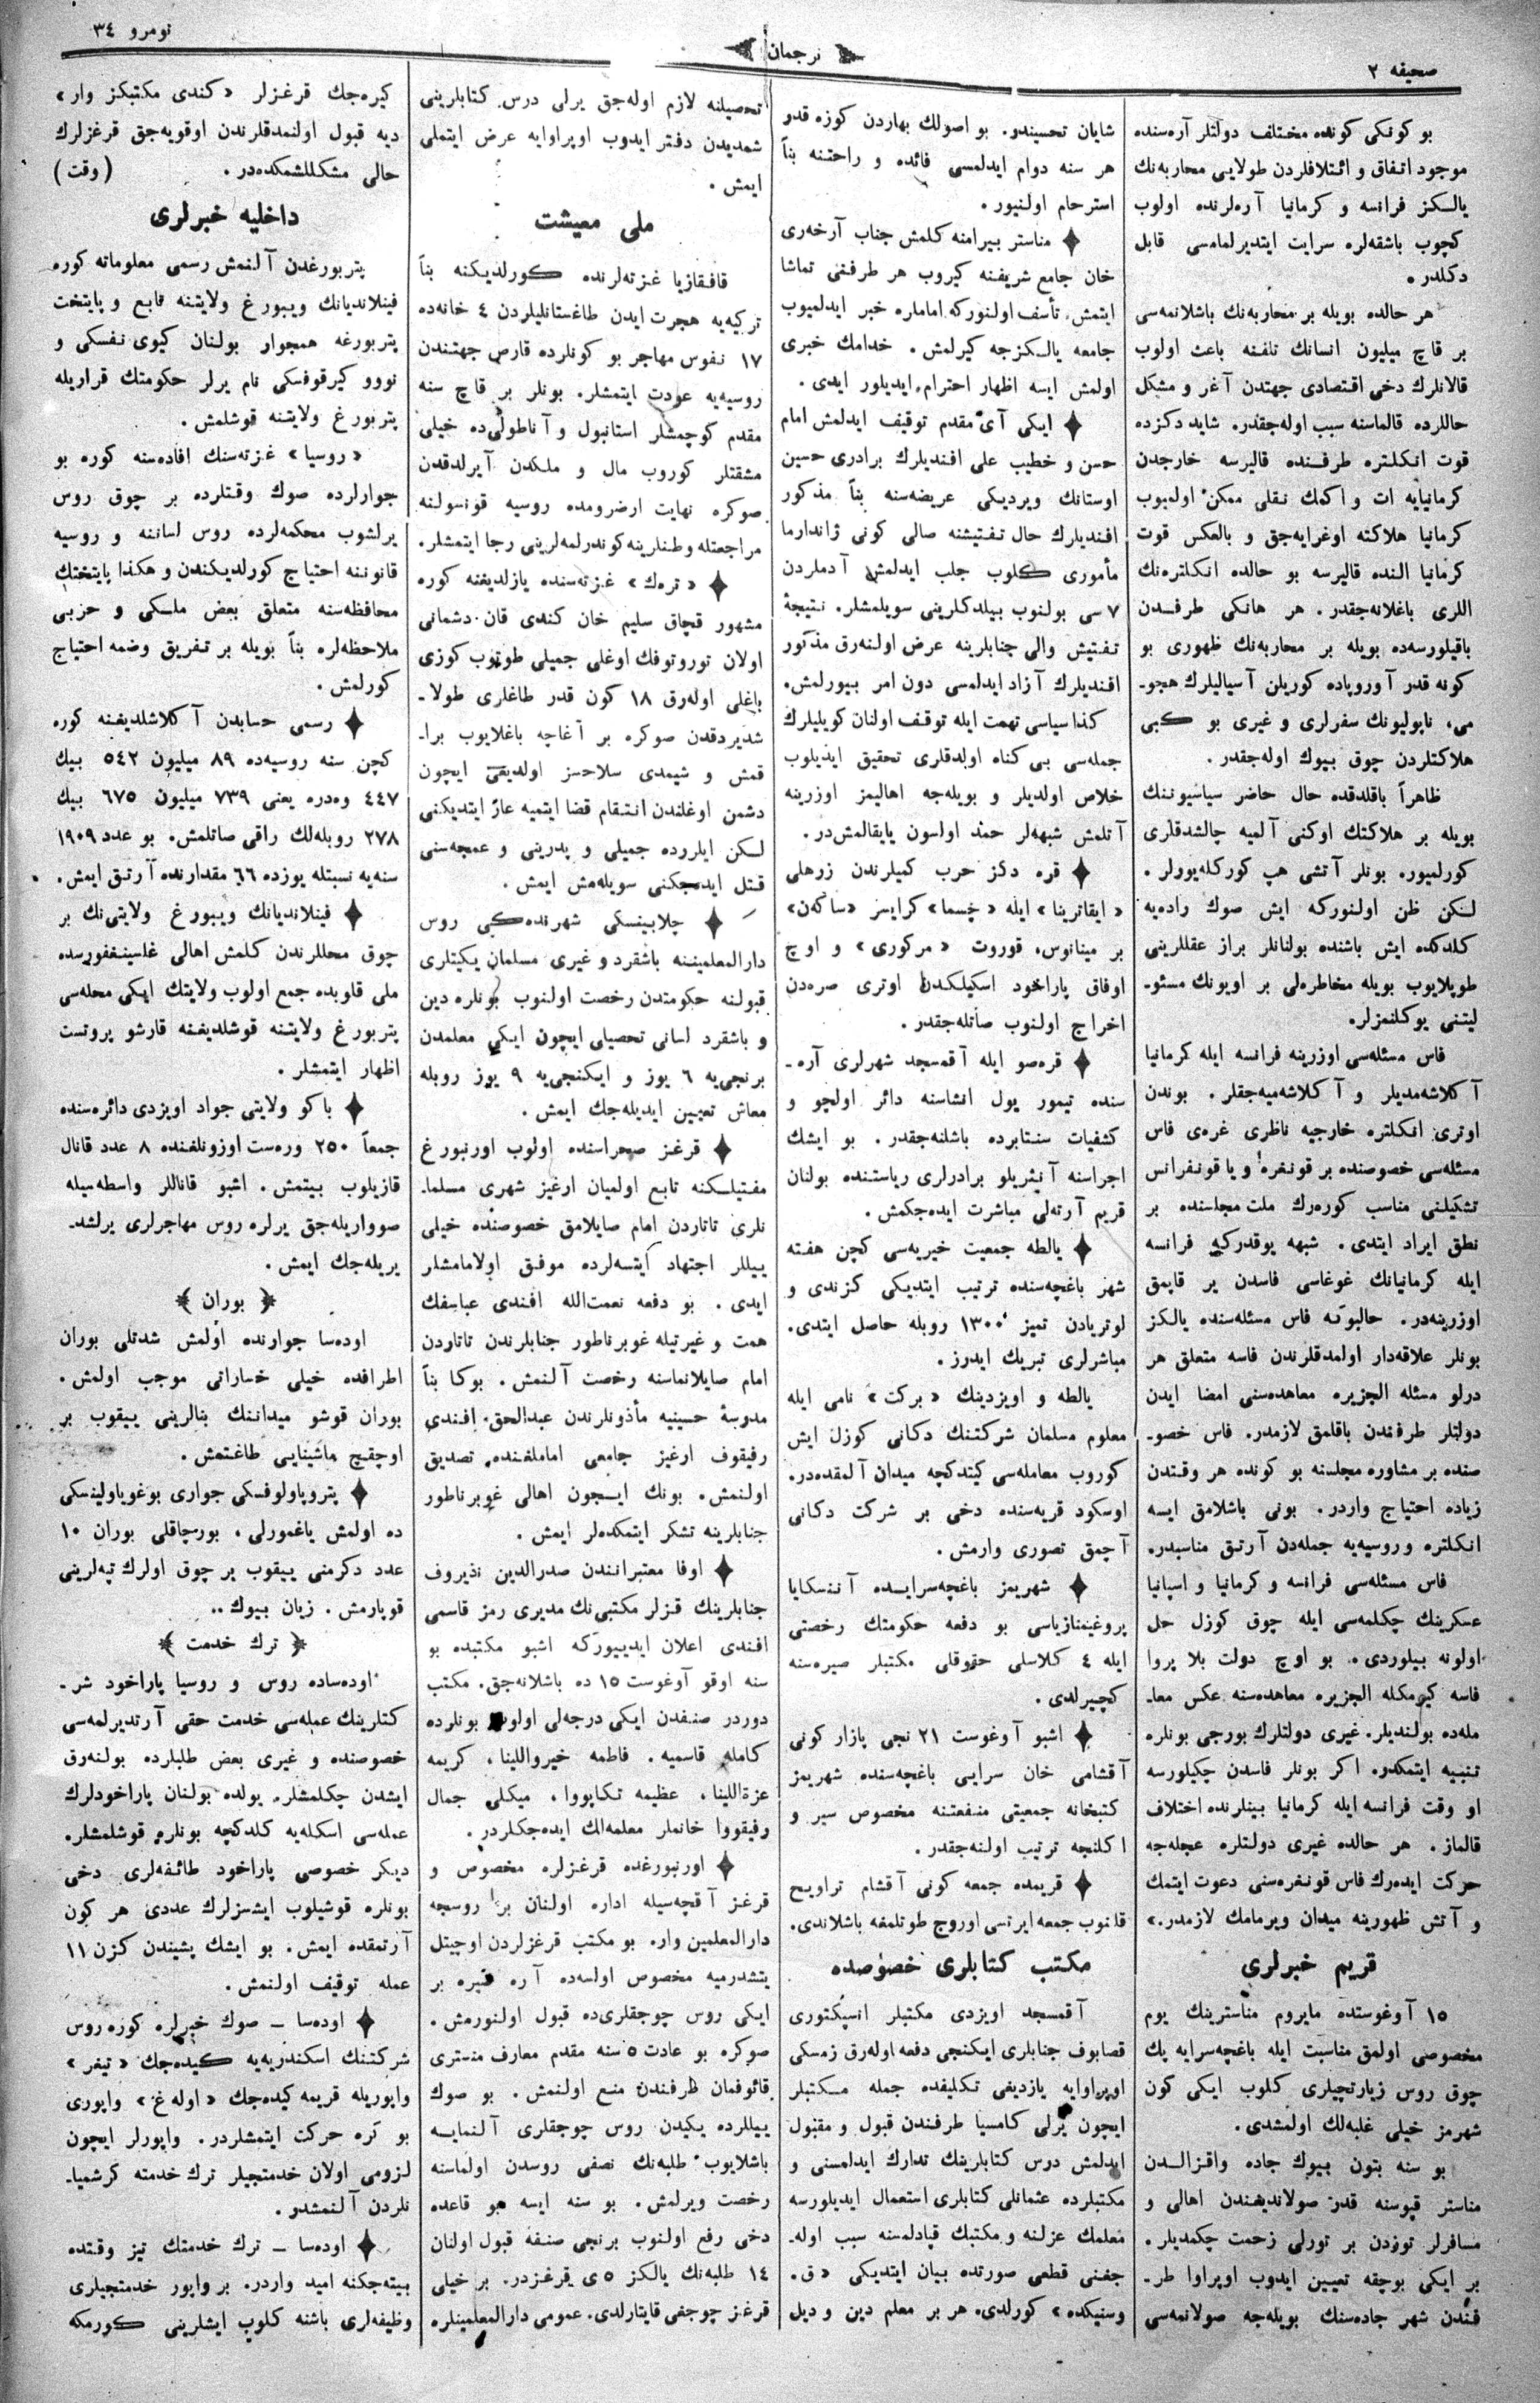 صحیفه ٢
ترجمان
نومرو ٣٤
بو كونكی كونده مختلف دولتلر آره‌سنده
موجود اتفاق و ائتلافلردن طولایی محاربه‌نك
یالكز فرانسه و كرمانیا آره‌لرنده اولوب
كچوب باشقه‌لره سرایت ایتدیرلمامسی قابل
دكلدر.
هر حالده بویله بر محاربه‌نك باشلانمه‌سی
بر قاچ میلیون انسانك تلفنه باعث اولوب
قالانلرك دخی اقتصادی جهتدن آغر و مشكل
حاللرده قالماسنه سبب اوله‌جقدره شاید دكزده
قوت انكلتره طرفنده قالیرسه خارجدن
كرمانیایه ات و اكمك نقلی ممكن اولمیوب
كرمانیا هلاكته اوغرایه‌جق و بالعكس قوت
كرمانیا النده قالیرسه بو حالده انكلتره‌نك
اللری باغلانه‌جقدر. هر هانكی طرفدن
باقیلورسه‌ده بویله بر محاربه‌نك ظهوری بو
كونه قدر آوروپاده كوریلن آسیالیلرك هجو-
می، ناپولیونك سفرلری و غیری بو كبی
هلاكتلردن چوق بیوك اوله‌جقدر.
ظاهراً باقلدقده حال حاضر سیاسیوننك
بویله بر هلاكتك اوكنی آلمیه چالشدقلری
كورلمیور. بونلر آتشی هپ كورکله‌یورلر.
لكن ظن اولنوركه ایش صوك راده‌یه
كلدكده ایش باشنده بولنانلر براز عقللرینی
طوپلایوب بویله مخاطره‌لی بر اویونك مسئو-
لیتنی یوكلنمزلر.
فاس مسئله‌سی اوزرینه فرانسه ایله كرمانیا
آكلاشه‌مدیلر و آكلاشه‌میه‌جقلر. بوندن
اوتری انكلتره خارجیه ناظری غره‌ی فاس
مسئله‌سی خصوصنده بر قونغره و یا قونفرانس
تشكیلنی مناسب كوره‌رك ملت مجلسنده بر
نطق ایراد ایتدی. شبهه یوقدركه فرانسه
ایله كرمانیانك غوغاسی فاسدن یر قاپمق
اوزرینه‌در. حالبوكه فاس مسئله‌سنده یالكز
بونلر علاقه‌دار اولمدقلرندن فاسه متعلق هر
درلو مسئله الجزیره معاهده‌سنی امضا ایدن
دولتلر طرفندن باقلمق لازمدر. فاس خصو-
صنده بر مشاوره مجلسنه بو كونده هر وقتدن
زیاده احتیاج واردر. بونی باشلامق ایسه
انكلتره و روسیه‌یه جمله‌دن آرتق مناسبدر.
فاس مسئله‌سی فرانسه و كرمانیا و اسپانیا
عسكرینك چكلمه‌سی ایله چوق كوزل حل
اولونه بیلوردی. بو اوچ دولت بلا پروا
فاسه كیرمكله الجزیره معاهده‌سنه عكس معا-
مله‌ده بولندیلر. غیری دولتلرك بورجی بونلره
تنبیه ایتمكدر. اكر بونلر فاسدن چكیلورسه
او وقت فرانسه ایله كرمانیا بینلرنده اختلاف
قالماز. هر حالده غیری دولتلره عجله‌جه
حركت ایده‌رك فاس قونغره‌سنی دعوت ایتمك
و آتش ظهورینه میدان ویرمامك لازمدر.»
قریم خبرلری
١٥ آوغوستده مایروم مناسترینك یوم
مخصوصی اولمق مناسبت ایله باغچه‌سرایه پك
چوق روس زیارتچیلری كلوب ایكی كون
شهرمز خیلی غلبه‌لك اولمشدی.
بو سنه بتون بیوك جاده واقزالدن
مناستر قپوسنه قدر صولاندیغندن اهالی و
مسافرلر توزدن بر تورلی زحمت چكمدیلر.
بر ایكی بوچقه تعیین ایدوب اوپراوا طر-
فندن شهر جاده‌سنك بویله‌جه صولانمه‌سی
شایان تحسیندر. بو اصولك بهاردن كوزه قدر
هر سنه دوام ایدلمسی فائده و راحتنه بناً
استرحام اولنیور.
مناستر بیرامنه كلمش جناب آرخه‌ری
خان جامع شریفنه كیروب هر طرفنی تماشا
ایتمش، تأسف اولنوركه امامله خبر ایدلمیوب
جامعه یالكزجه كیرلمش. خدامك خبری
اولمش ایسه اظهار احترام ایدیلور ایدی.
ایكی آی مقدم توقیف ایدلمش امام
حسن و خطیب علی افندیلرك برادری حسین
اوستانك ویردیكی عریضه‌سنه بناً مذكور
افندیلرك حال تفتیشنه صالی كونی ژاندارما
مأموری كلوب جلب ایدلمش آدملردن
٧ سی بولنوب بیلدكلرینی سویلمشلر. نتیجهٔ
تفتیش والی جنابلرینه عرض اولنه‌رق مذكور
افندیلرك آزاد ایدلمسی دون امر بیورلمش.
كذا سیاسی تهمت ایله توقف اولنان كویلیلرك
جمله‌سی بی كناه اولدقلری تحقیق ایدیلوب
خلاص اولدیلر و بویله‌جه اهالیمز اوزرینه
آتلمش شبهه‌لر حمد اولسون یایقالمش‌در.
قره دكز حرب كمیلرندن زرهلی
«ایقاترینا» ایله «چسما» كرایسر «ساكەن»
بر مینانوس، قوروت «مركوری» و اوچ
اوفاق پاراخود اسكیلكدن اوتری صره‌دن
اخراج اولنوب صاتله‌جقدر.
قره‌صو ایله آقمسجد شهرلری آره-
سنده تیمور یول انشاسنه دائر اولچو و
كشفیات سنتابرده باشلنه‌جقدر. بو ایشك
اجراسنه آنثریلو برادرلری ریاستنده بولنان
قریم آرته‌لی مباشرت ایده‌جكمش.
یالطه جمعیت خیریه‌سی كچن هفته
شهر باغچه‌سنده ترتیب ایتدیكی كزندی و
لوتریادن تمیز ١٣٠٠ روبله حاصل ایتدی.
مباشرلری تبریك ایدرز.
یالطه و اویزدینك «بركت» نامی ایله
معلوم مسلمان شركتنك دكانی كوزل ایش
كوروب معامله‌سی كیتدكچه میدان آلمقده‌در.
اوسكود قریه‌سنده دخی بر شركت دكانی
آچمق تصوری وارمش.
شهریمز باغچه‌سرایده آننسكایا
پروغیمنازیاسی بو دفعه حكومتك رخصتی
ایله ٤ كلاسلی حقوقلی مكتبلر صیره‌سنه
كچیرلدی.
اشبو آوغوست ٢١ نجی پازار كونی
آقشامی خان سرایی باغچه‌سنده شهریمز
كتبخانه جمعیتی منفعتنه مخصوص سیر و
اكلنجه ترتیب اولنه‌جقدر.
قریمده جمعه كونی آقشام تراویح
قلنوب جمعه ایرتسی اوروج طوتلمغه باشلاندی.
مكتب كتابلری خصوصده
آقمسجد اویزدی مكتبلر انسپكتوری
قصابوف جنابلری ایكنجی دفعه اوله‌رق زمسكی
اوپراوایه یازدیغی تكلیفده جمله مكتبلر
ایچون یرلی كامسیا طرفندن قبول و مقبول
ایدلمش درس كتابلرینك تدارك ایدلمسنی و
مكتبلرده عثمانلی كتابلری استعمال ایدیلورسه
معلمك عزلنه و مكتبك قپادلمسنه سبب اوله-
جغنی قطعی صورتده بیان ایتدیكی «ق.
وستنیكده» كورلدی. هر بر معلم دین و دیل
تحصیلنه لازم اوله‌جق یرلی درس كتابلرینی
شمدیدن دفتر ایدوب اوپراوایه عرض ایتملی
ایمش.
ملی معیشت
قافقازیا غزته‌لرنده كورلدیكنه بناً
تركیه‌یه هجرت ایدن طاغستانلیلردن ٤ خانه‌ده
١٧ نفوس مهاجر بو كونلرده قارص جهتندن
روسیه‌یه عودت ایتمشلر. بونلر بر قاچ سنه
مقدم كوچمشلر استانبول و آناطولی‌ده خیلی
مشقتلر كوروب مال و ملكدن آیرلدقدن
صوكره نهایت ارضرومده روسیه قونسولنه
مراجعتله وطنلرینه كوندرلمه‌لرینی رجا ایتمشلر.
«ترەك» غزته‌سنده یازلدیغنه كوره
مشهور قچاق سلیم خان كندی قان دشمانی
اولان توروتوفك اوغلی جمیلی طوتوب كوزی
باغلی اوله‌رق ١٨ كون قدر طاغلری طولا-
شدیردقدن صوكره بر آغاچه باغلایوب برا-
قمش و شیمدی سلاحسز اولدیغی ایچون
دشمن اوغلندن انتقام قضا ایتمیه عار ایتدیكنی
لكن ایلرده جمیلی و پدرینی و عمجه‌سنی
قتل ایده‌جكنی سویله‌مش ایمش.
چلابینسكی شهرنده‌كی روس
دارالمعلمیننه باشقرد و غیری مسلمان یكیتلری
قبولنه حكومتدن رخصت اولنوب بونلره دین
و باشقرد لسانی تحصیلی ایچون ایكی معلمدن
برنجی‌یه ٦ یوز و ایكنجی‌یه ٩ یوز روبله
معاش تعیین ایدیله‌جك ایمش.
قرغز صحراسنده اولوب اورنبورغ
مفتیلكنه تابع اولمیان ارغیز شهری مسلما-
نلری تاتاردن امام صایلامق خصوصنده خیلی
ییللر اجتهاد ایتسه‌لرده موفق اولامامشلر
ایدی. بو دفعه نعمت‌الله افندی عباسفك
همت و غیرتیله غوبرناطور جنابلرندن تاتاردن
امام صایلانماسنه رخصت آلنمش. بوكا بناً
مدرسهٔ حسینیه مأذونلرندن عبدالحق افندی
رفیقوف ارغیز جامعی اماملغنده تصدیق
اولنمش. بونك ایچون اهالی غوبرناطور
جنابلرینه تشكر ایتمكده‌لر ایمش.
اوفا معتبرانندن صدرالدین نذیروف
جنابلرینك قزلر مكتبی‌نك مدیری رمز قاسمی
افندی اعلان ایدییوركه اشبو مكتبده بو
سنه اوقو آوغوست ١٥ ده باشلانه‌جق. مكتب
دوردر صنفدن ایكی درجه‌لی اولوب بونلرده
كامله قاسمیه. فاطمه خیرواللینا، كریمه
عزةاللینا، عظیمه تكاپووا، میكلی جمال
رفیقووا خانملر معلمه‌لك ایده‌جكلردر.
اورنبورغده قرغزلره مخصوص و
قرغز آقچه‌سیله اداره اولنان بر روسچه
دارالمعلمین وار. بو مكتب قرغزلردن اوچیتل
یتشدرمیه مخصوص اولسه‌ده آره صیره بر
ایكی روس چوجقلری‌ده قبول اولنورمش.
صوكره بو عادت ٥ سنه مقدم معارف منستری
قائوفمان طرفندن منع اولنمش. بو صوك
ییللرده یكیدن روس چوجقلری آلنمایه
باشلایوب طلبه‌نك نصفی روسدن اولماسنه
رخصت ویرلمش. بو سنه ایسه هو قاعده
دخی رفع اولنوب برنجی صنفه قبول اولنان
١٤ طلبه‌نك یالكز ٥ ی قرغزدر. بر خیلی
قرغز چوجغی قایتارلدی. عمومی دارالمعلمینلره
كیره‌جك قرغزلر «كندی مكتبكز وار»
دیه قبول اولنمدقلرندن اوقویه‌جق قرغزلرك
حالی مشكللشمكده‌در. (وقت)
داخلیه خبرلری
پتربورغدن آلنمش رسمی معلوماته كوره
فینلاندیانك ویبورغ ولایتنه تابع و پایتخت
پتربورغه همجوار بولنان كیوی نفسكی و
نووو كیرقوفسكی نام یرلر حكومتك قراریله
پتربورغ ولایتنه قوشلمش.
«روسیا» غزته‌سنك افاده‌سنه كوره بو
جوارلرده صوك وقتلرده بر چوق روس
یرلشوب محكمه‌لرده روس لساننه و روسیه
قانوننه احتیاج كورلدیكندن و هكذا پایتختك
محافظه‌سنه متعلق بعض ملكی و حربی
ملاحظه‌لره بناً بویله بر تفریق وضمه احتیاج
كورلمش.
رسمی حسابدن آكلاشلدیغنه كوره
كچن سنه روسیه‌ده ٨٩ میلیون ٥٤٢ بیك
٤٤٧ وه‌دره یعنی ٧٣٩ میلیون ٦٧٥ بیك
٢٧٨ روبله‌لك راقی صاتلمش. بو عدد ١٩٠٩
سنه‌یه نسبتله یوزده ٦٦ مقدارنده آرتق ایمش.
فینلاندیانك ویبورغ ولایتی‌نك بر
چوق محللرندن كلمش اهالی غلسینغفورسده
ملی قلوبده جمع اولوب ولایتك ایكی محله‌سی
پتربورغ ولایتنه قوشلدیغنه قارشو پروتست
اظهار ایتمشلر.
باكو ولایتی جواد اویزدی دائره‌سنده
جمعاً ٢٥٠ وەرست اوزونلغنده ٨ عدد قانال
قازیلوب بیتمش. اشبو قاناللر واسطه‌سیله
صوواریله‌جق یرلره روس مهاجرلری یرلشد-
یریله‌جك ایمش.
﴿ بوران ﴾
اوده‌سا جوارنده اولمش شدتلی بوران
اطرافده خیلی خساراتی موجب اولمش.
بوران قوشو میداننك بنالرینی ییقوب بر
اوچقچ ماشینایی طاغتمش.
پتروپاولوفسكی جواری بوغویاولینسكی
ده اولمش یاغمورلی، بورچاقلی بوران ١٠
عدد دكرمنی ییقوب بر چوق اولرك تپه‌لرینی
قوپارمش. زیان بیوك..
﴿ ترك خدمت ﴾
اوده‌ساده روس و روسیا پاراخود شر-
كتلرینك عمله‌سی خدمت حقی آرتدیرلمه‌سی
خصوصنده و غیری بعض طلبلرده بولنه‌رق
ایشدن چكلمشلر. یولده بولنان پاراخودلرك
عمله‌سی اسكله‌یه كلدكچه بونلره قوشلمشلر.
دیكر خصوصی پاراخود طائفه‌لری دخی
بونلره قوشیلوب ایشسزلرك عددی هر كون
آرتمقده ایمش. بو ایشك پشیندن كزن ١١
عمله توقیف اولنمش.
اوده‌سا – صوك خبرلره كوره روس
شركتنك اسكندریه‌یه كیده‌جك «تیغر»
واپوریله قریمه كیده‌جك «اوله‌غ» واپوری
بو كره حركت ایتمشلردر. واپورلر ایچون
لزومی اولان خدمتجیلر ترك خدمته كرشمیا-
نلردن آلنمشدر.
اوده‌سا – ترك خدمتك تیز وقتده
بیته‌جكنه امید واردر. بر واپور خدمتجیلری
وظیفه‌لری باشنه كلوب ایشلرینی كورمكه